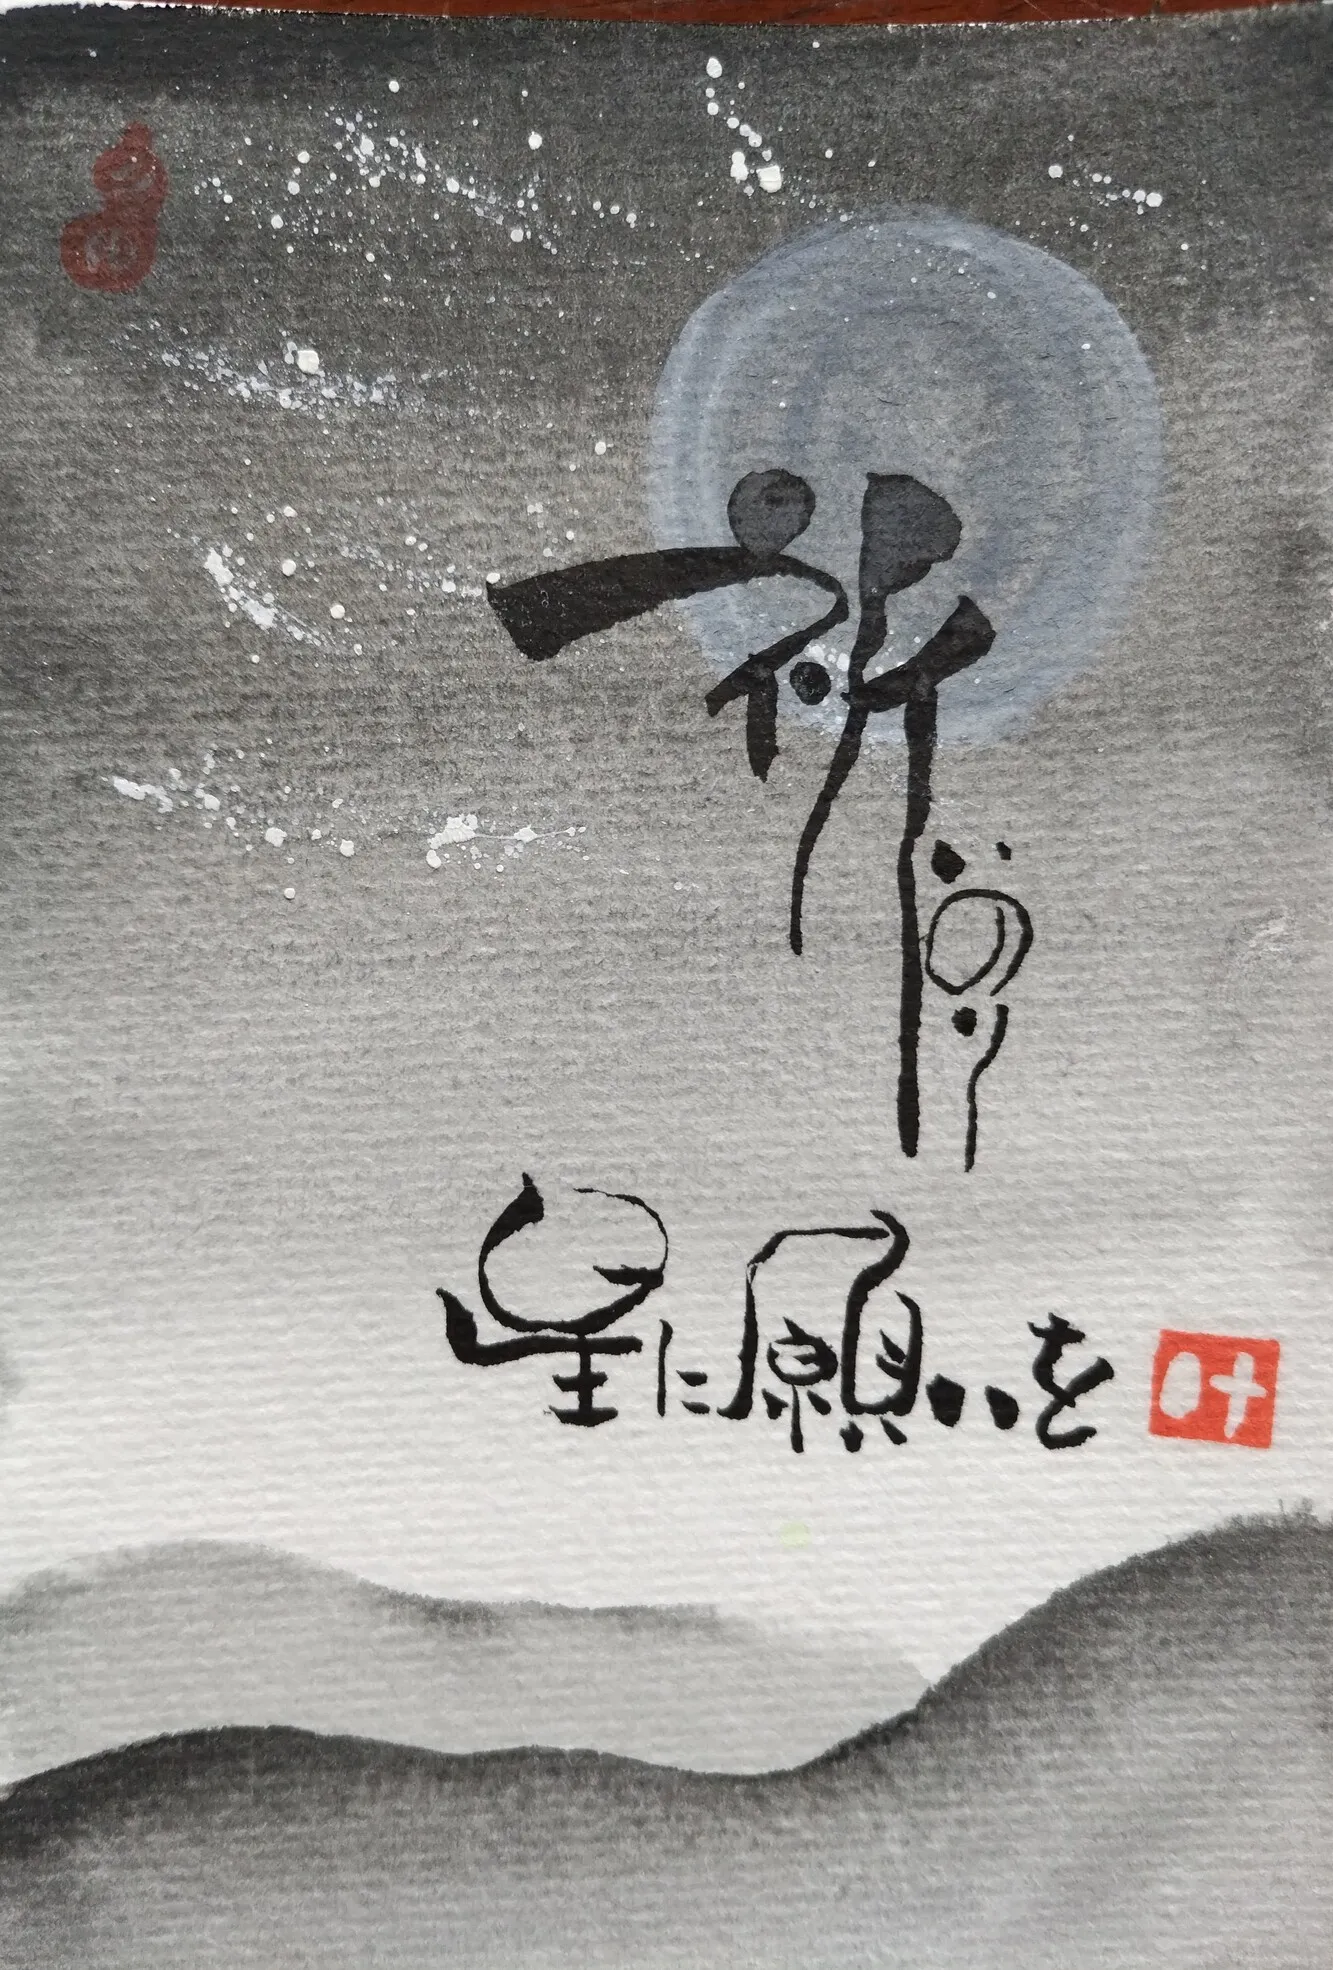 祈
いのり
星に願いを
叶